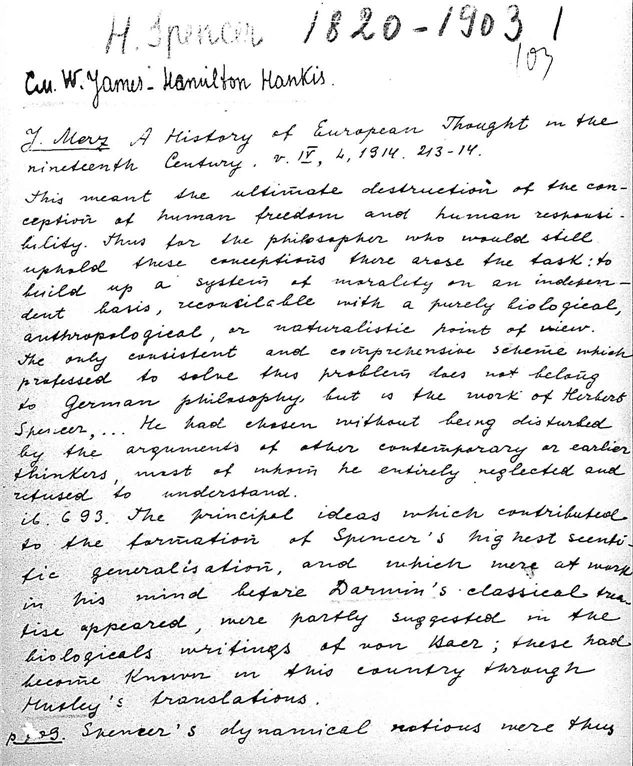 H. Spencer 1820-1903 1
103
См. W. James - Hamilton Hankis.
J. Merz A History of European Thought in the
nineteenth Century. v. IV, L, 1914. 213-14.
This meant the ultimate destruction of the con-
ception of human freedom and human responsi-
bility. Thus for the philosopher who would still
uphold these conceptions there arose the task: to
build up a system of morality on an indepen-
dent basis, reconcilable with a purely biological,
anthropological, or naturalistic point of view.
The only consistent and comprehensive scheme which
professed to solve this problem does not belong
to German philosophy, but is the work of Herbert
Spencer,... He had chosen without being disturbed
by the arguments of other contemporary or earlier
thinkers, most of whom he entirely neglected and
refused to understand.
ib. 693. The principal ideas which contributed
to the formation of Spencer's highest scenti-
fic generalisation, and which were at work
in his mind before Darwin's classical trea-
tise appeared, were partly suggested in the
biologicals writings of von Baer; these had
become known in this country through
Huxley's translations.
Spencer's dynamical notions were thus